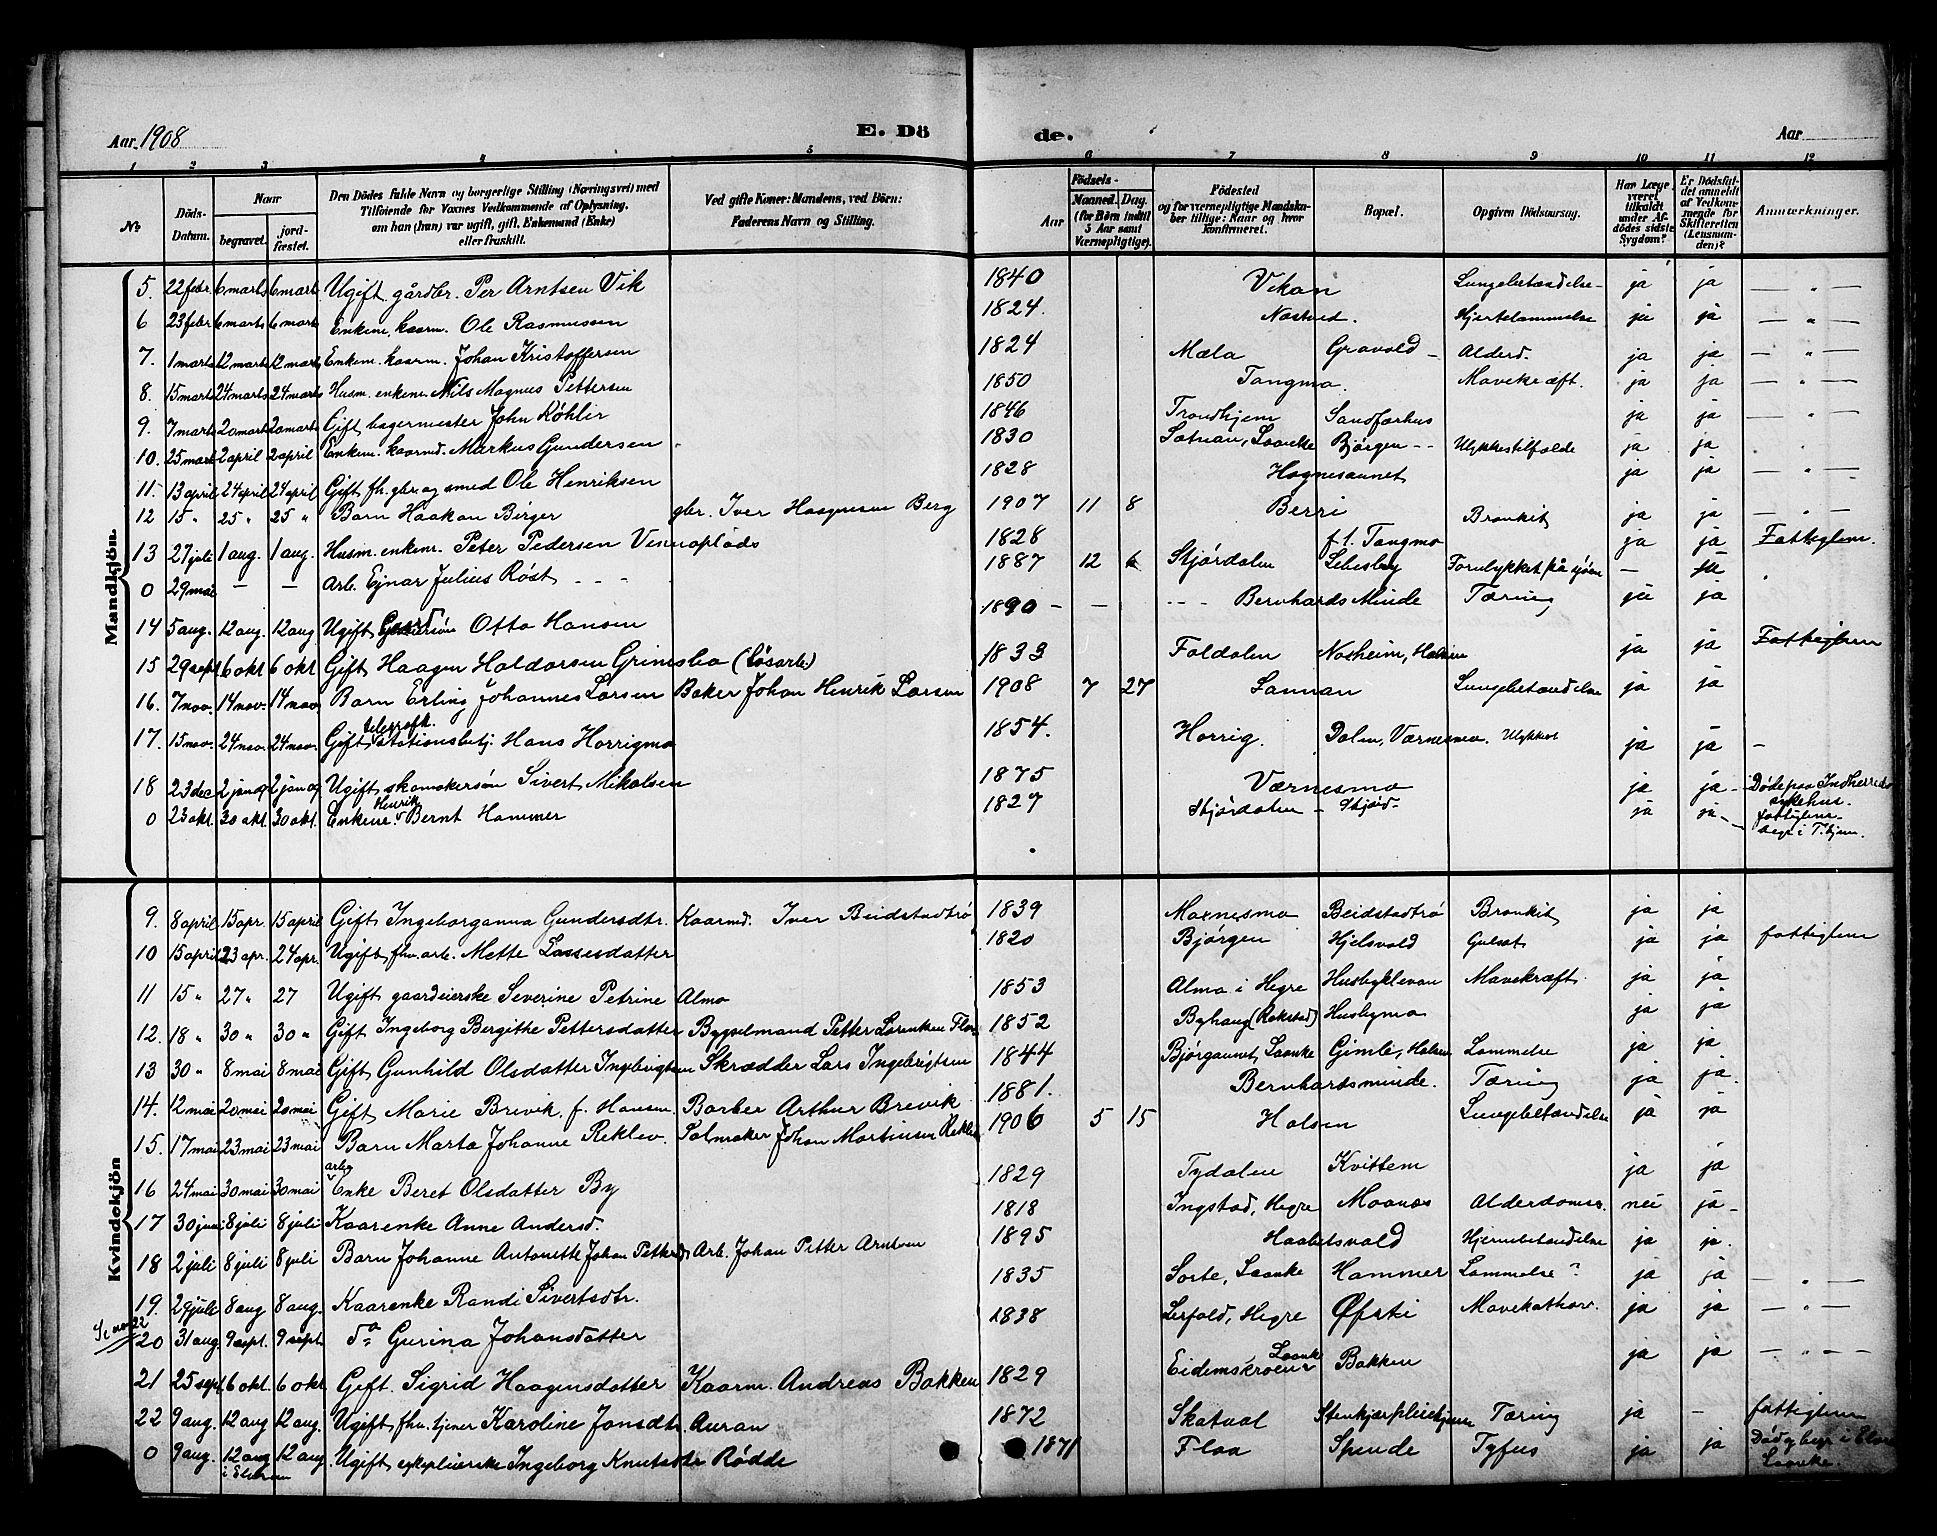 Aar 1908 E. Dö de. Aar
1 2 3 4 5 6 7 8 9 10 11 12
№ Döds-Datum. Naar begravet. jordfæstet. Den Dödes fulde Navn og borgerlige Stilling (Næringsvei) med Tilföiende for Voxnes Vedkommende af Oplysning, om han (hun) var ugift, gift, Enkemand (Enke) eller fraskilt. Ved gifte Koner: Mandens, ved Börn: Faderens Navn og Stilling. Födsels- Aar Maaned. Dag. (for Börn indtil 5 Aar samt Værnepligtige). Födested og for værnepligtige Mandskaber tillige: Naar og hvor konfirmeret. Bopæl. Opgiven Dödsaarsag. Har Læge været tilkaldt under Afdödes sidste Sygdom? Er Dödsfaldet anmeldt af Vedkommende for Skifteretten (Lensmanden)? Anmærkninger.
Mandkjön.
5. 22 febr. 6 marts 6 marts Ugift gårdbr. Per Arntsen Vik 1840 Vikan Lungebetændelse ja ja — " —
6 23 febr 6 marts 6 marts Enkem. kaarm. Ole Rasmussen 1824. Nastved. Hjertelammelse ja ja — " —
7. 1 marts 12 marts 12 marts Enkem. kaarm. Johan Kristoffersen 1824 Mæla Gravold Alderd. ja ja — " —
8. 15 marts 24 marts 24 marts Husm. enkem Nils Magnus Pettersen 1850 Tangmo. Mavekræft. ja ja — " —
9. 7 marts 20 marts 20 marts Gift bagermester John Köhler 1846 Trondhjem Sandfærhus ja ja — " —
10. 25 marts 2 april 2 april Enkem. kaarmd. Markus Gundersen 1830 Saanke Bjørgen Ulykkestilfælde ja ja
11. 13 april 24 april 24 april Gift fh. gbr. og smed Ole Henriksen 1828 Hognesaunet ja ja — " —
12 15 " 25 " 25 " Barn Haakon Birger gbr. Iver Berg 1907 11 8 Berri Bronkit ja ja — " —
13 27 juli 1 aug. 1 aug. Husm. enkem. Peter Pedersen 1828 f.t. Tangmo ja ja Fattiglem.
0 29 mai — — Arb. Ejnar Julius Røst 1887 12 Stjørdalen Lebesby Forulykket på sjøen —
14 5 aug. 12 aug. 12 aug Ugift Otto Hansen 1890 — — Bernhards Minde Tæring ja ja
15 29 sept 6 okt 6 okt. Gift Haagen Haldorsen Grimsbo (Løsarb.) 1833 Foldalen Nosheim, Halsen ja ja Fattiglem
16. 7 nov. 14 nov. 14 nov. Barn Erling Johannes Larsen Baker Johan Henrik Larsen 1908 7 27 Sannan Lungebetændelse ja ja
17. 15 nov. 24 nov. 24 nov. Gift telegrafk. stationsbetj. Hans Horrigmo 1854. Horrig. Dalen, Værnesmo. Ulykket ja ja —
18 23 dec 2 jan 09 2 jan 09 Ugift skomakersøn Sivert Mikalsen 1875 Værnesmo ja ja Døde paa Indherreds sykehus.
0 23 okt. 30 okt 30 okt. Enkem. Henrik Bernt Hammer 1827 Stjørdalen — ja ja fattiglem begr. i T.hjem.
Kvindekjön
9. 8 april 15 apr. 15 april Gift Ingeborganna Gundersdtr. Kaarmd. Iver Beidstadtrø 1839 Moxnesmo Beidstadtrø Bronkit ja ja
10 15 april 23 apr. 24 apr. Ugift fhv. arb. Mette Lassesdatter 1820 Bjørgen Hjelsvold Gulsot ja ja fattiglem
11 15 " 27 " 27 Ugift gaardeierske Severine Petrine Almo 1853 Almo i Hegre Husbyklevan Mavekræft. ja ja
12. 18 " 30 " 30 " Gift Ingeborg Bergithe Pettersdatter Bygselmand Petter Lorentsen 1852 Byhaug (Rokstad) Husbymo ja ja
13 30 " 8 mai 8 mai Gift Gunhild Olsdatter Ingebrigtsen Skrædder Lars Ingebrigtsen 1844 Bjørgaunet, Laanke Gimle, Halsen Lammelse ja ja
14. 12 mai 20 mai 20 mai Gift Marie Brevik f. Hansen Barber Arthur Brevik 1881. Bernhardsminde. Tæring ja ja.
15. 17 mai 23 mai 23 mai Barn Marta Johanne Reklev. Salmaker Johan Martinsen Reklev 1906 5 15 Halsen Lungebetændelse ja ja
16 24 mai 30 mai 30 mai arb. Enke Beret Olsdatter By 1829 Tydalen Kvittem ja ja
17 30 juni 8 juli 8 juli Kaarenke Anne Andersd. 1818 Ingstad, Hegre Moanæs Alderdomsv. nei ja
18 2 juli 8 juli 8 juli Barn Johanne Antonette Johan Petter Arb. Johan Petter Arntsen 1895 Haabetsvold Hjernebetændelse ja ja.
19. 29 juli 8 aug 8 aug. Kaarenke Randi Sivertsdtr. 1835 Sorte, Laanke Hammer Lammelse? ja ja — " —
Se no 22
20 31 aug 9 sept. 9 sept. do Gurina Johansdatter 1838 Lerfald, Hegre Øfsti Mavekathar. ja ja — " —
21 25 sept. 6 okt. 6 okt Gift. Sigrid Haagensdatter Kaarm. Andreas Bakken 1829 Laanke Bakken ja ja — " —
22 9 aug. 12 aug 12 aug. Ugift fhv. tjener Karoline Jonsdtr. Auran 1872 Skatval Stenkjærpleiehjem Tæring ja — fattiglem
0 9 aug. 12 aug 12 aug. Ugift sykepleierske Ingeborg Knutsdtr Rødde 1871 Floa Spinde Tyfus ja ja Død, begr. i Laanke.